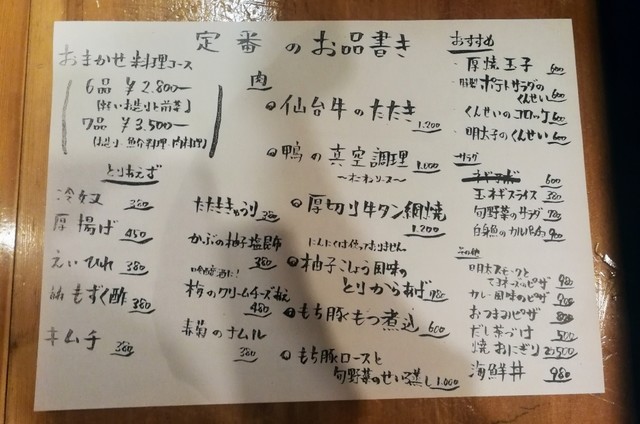 定番のお品書き
おまかせ料理コース
6品 ¥2.800-
7品 ¥3.500-
とりあえず
冷奴 380
厚揚げ 450
えいひれ 380
もずく酢 380
キムチ 380
たたききゅうり 380
かぶの柚子塩昆布
380
梅のクリームチーズ和え
480
赤菊のナムル
380
肉
仙台牛のたたき
1.200
鴨の真空調理 1.000
厚切り牛タン網焼
1.200
にんにくは使っておりません
柚子こしょう風味の
とりからあげ 780
もち豚もつ煮込 600
もち豚ロースと
旬野菜のせいろ蒸し 1.000
おすすめ
・厚焼玉子 600
ポテトサラダの
くんせい 600
くんせいのコロッケ 600
・明太子のくんせい 600
サラダ
600
玉ネギスライス 380
旬野菜のサラダ 780
白身魚のカルパッチョ 900
その他
明太スモークと
チーズのピザ 980
カレー風味のピザ 900
おつまみピザ 800
だし茶づけ 500
焼おにぎり 500
海鮮丼 980